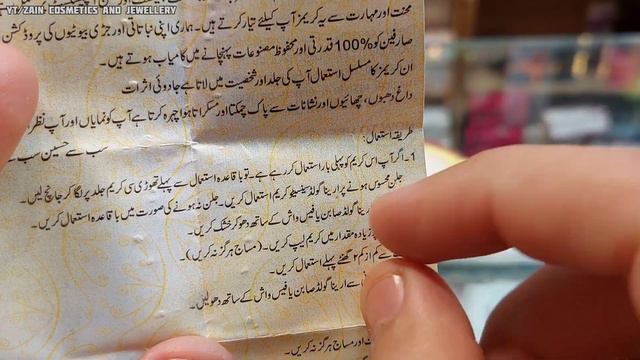 YT/ZAIN COSMETICS AND JEWELLERY
محنت اور مہارت سے یہ کریمز آپ کیلئے تیار کرتے ہیں۔ ہماری اپنی نباتاتی اور جڑی بوٹیوں کی پروڈکشن
صارفین کو %100 قدرتی اور محفوظ مصنوعات پہنچانے میں کامیاب ہوتے ہیں۔
ان کریمز کا مسلسل استعمال آپ کی جلد اور شخصیت میں لاتا ہے جادوئی اثرات
داغ دھبوں، چھائیوں اور نشانات سے پاک چمکتا اور مسکراتا ہوا چہرہ کرتا ہے آپ کو نمایاں اور آپ نظر
سب سے حسین سب سے
طریقہ استعمال:
1۔ اگر آپ اس کریم کو پہلی بار استعمال کر رہے ہے۔ تو باقاعدہ استعمال سے پہلے تھوڑی سی کریم جلد پر لگا کر جانچ لیں۔
جلن محسوس ہونے پر ارینا گولڈ سینسیٹو کریم استعمال کریں۔ جلن نہ ہونے کی صورت میں باقاعدہ استعمال کریں۔
ارینا گولڈ صابن یا فیس واش کے ساتھ دھو کر خشک کریں۔
زیادہ مقدار میں کریم لیپ کریں۔ (مساج ہرگز نہ کریں)۔
سے کم از کم ۲ گھنٹے پہلے استعمال کریں۔
سے ارینا گولڈ صابن یا فیس واش کے ساتھ دھو لیں۔
اور مساج ہرگز نہ کریں۔